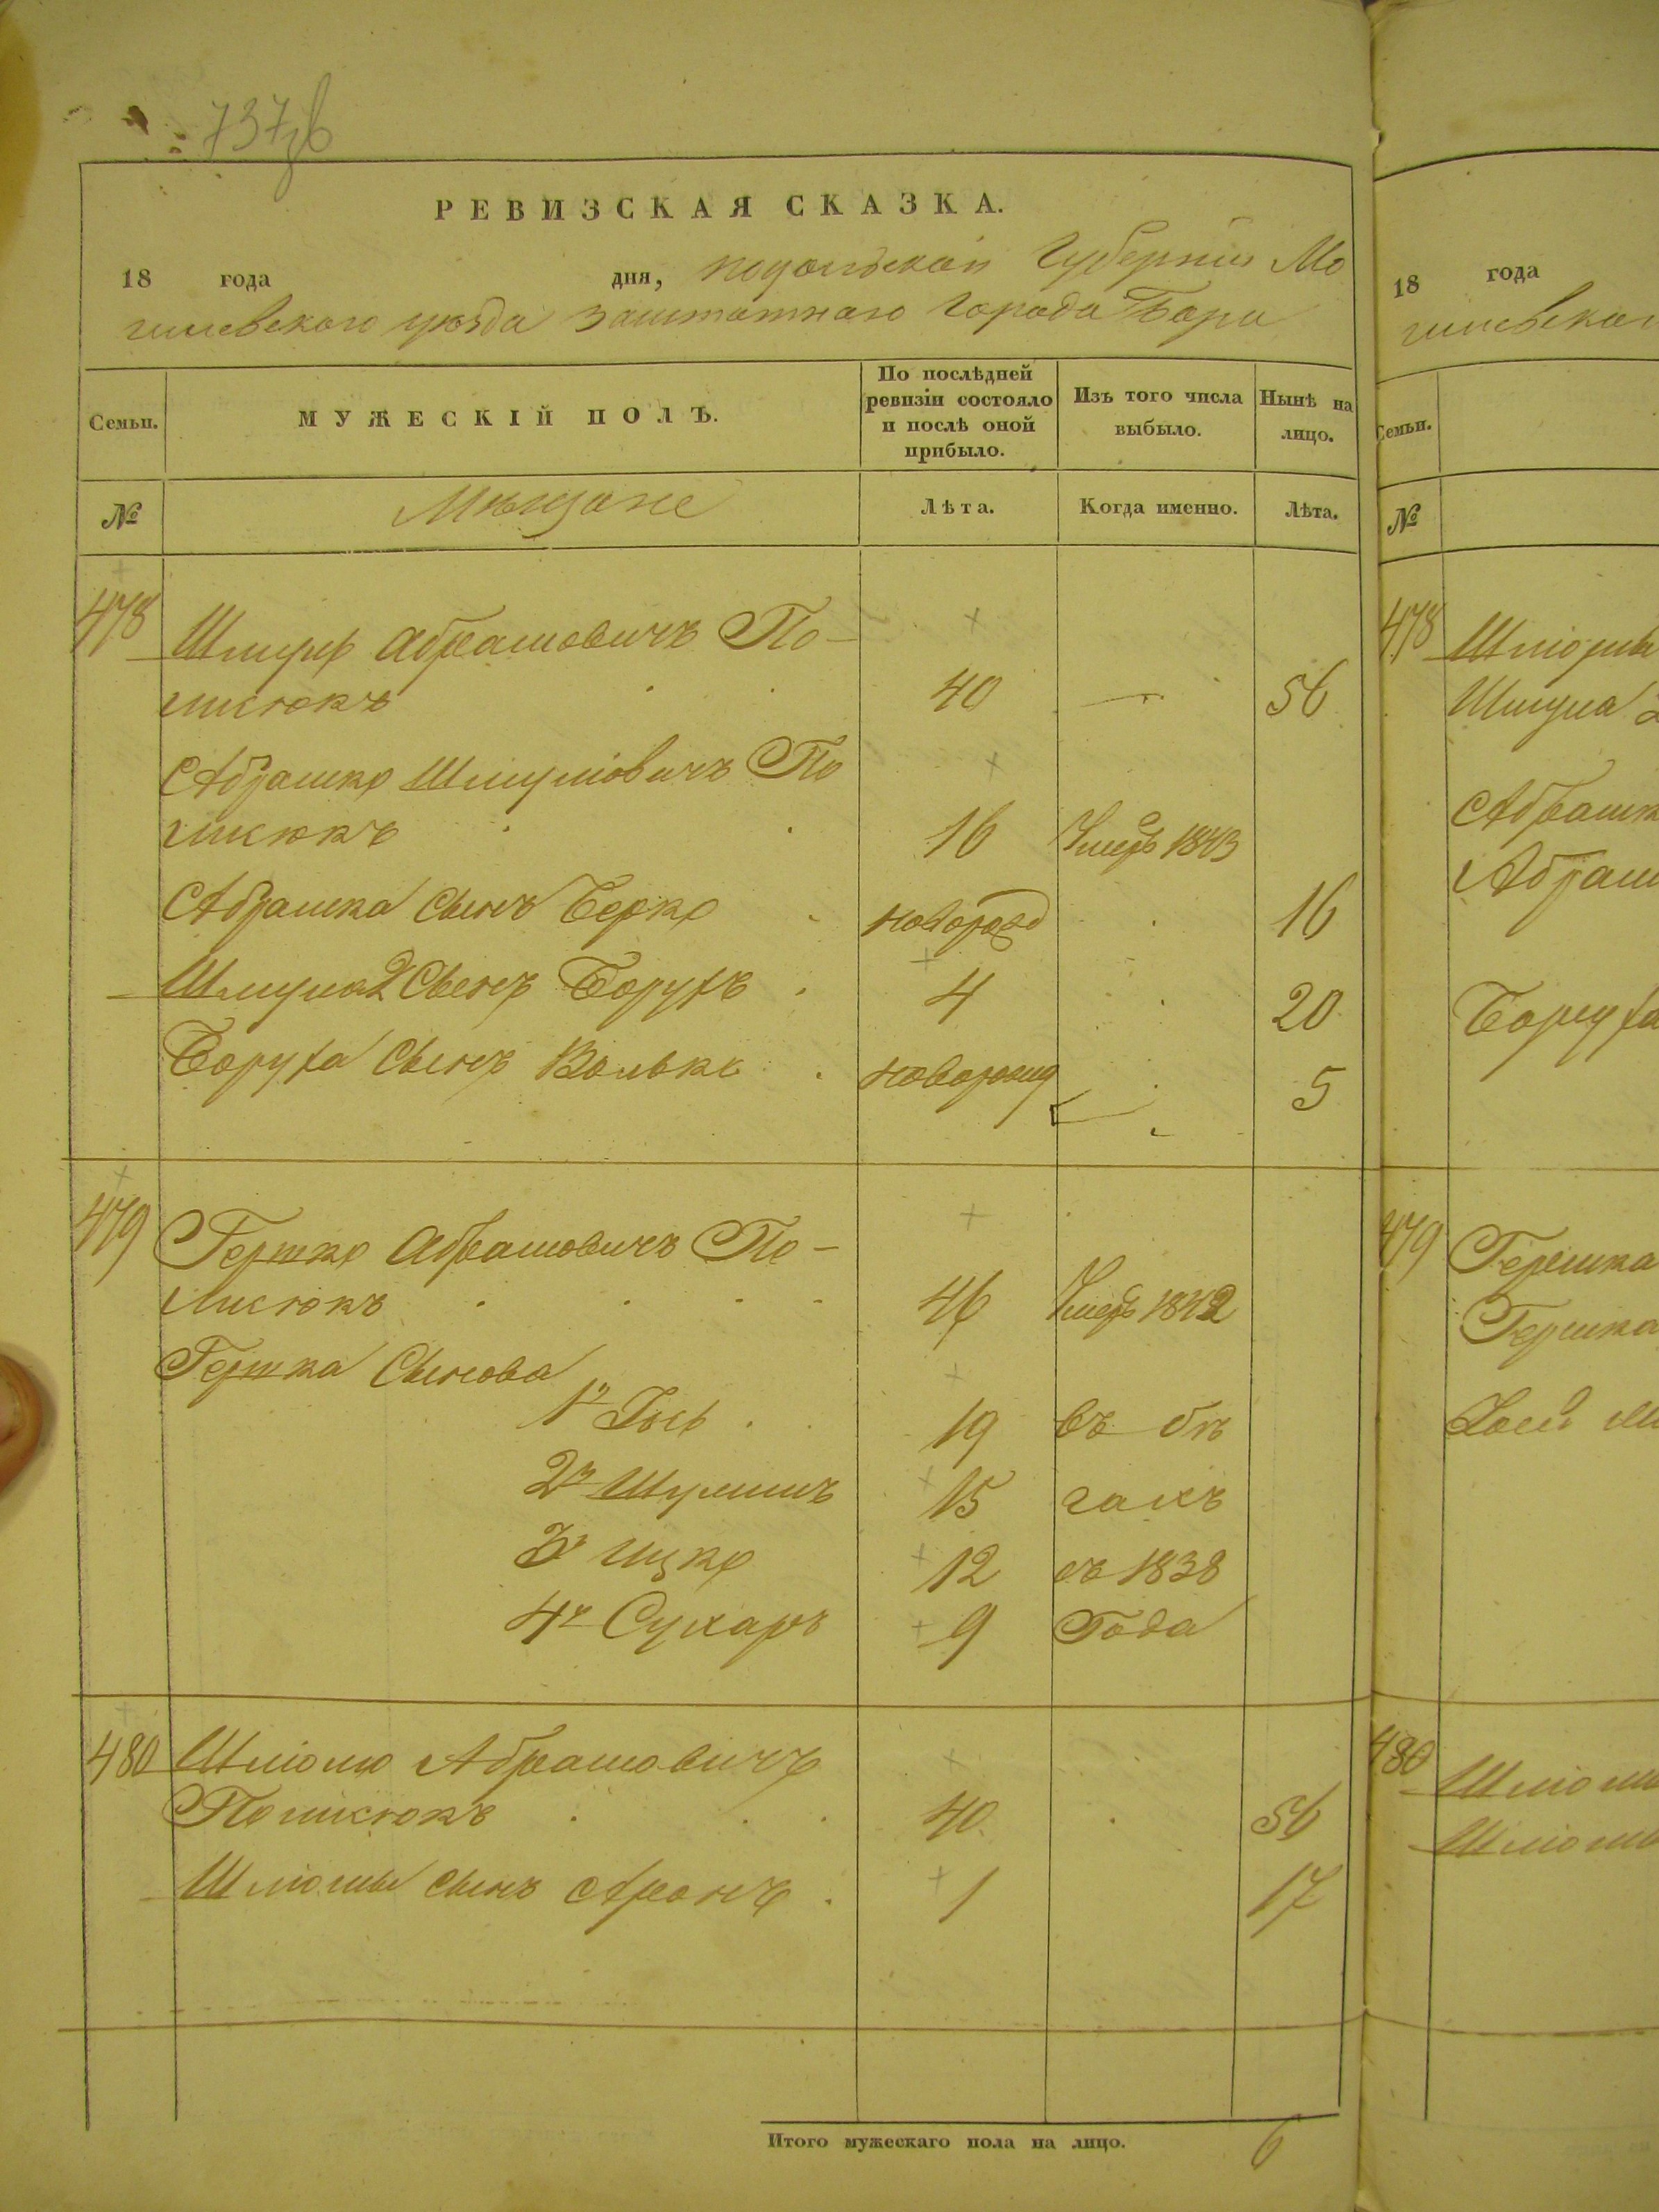 737об
РЕВИЗСКАЯ СКАЗКА.
18 года дня, подольской Губернии Мо
гилевского уезда заштатнаго города Бара
Семьи.
МУЖЕСКІЙ ПОЛЪ.
По послѣдней ревизіи состояло и послѣ оной прибыло.
Изъ того числа выбыло.
Нынѣ на лицо.
№ Мѣщане Лѣта. Когда именно. Лѣта.
478 Абрамовичъ По-
лисюкъ 40 — 56
Абрашко Шмулiовичъ По
лисюкъ 16 Умеръ 1843
Абрашка Сынъ Берко новорожд 16
Шмула 2 Сынъ Борухъ 4 20
Боруха Сынъ Волько новорожд 5
479 Гершко Абрамовичъ По-
лисюкъ 46 Умеръ 1842
Гершка Сынова
1й 19 въ бѣ
2й 15 гахъ
3й Ицко 12 съ 1838
4й Сухаръ 9 Года
480 Шліомо Абрамовичъ
Полисюкъ 40 56
Шліомы сынъ Аронъ 1 17
Итого мужескаго пола на лицо. 6
18 года
гилевског
Семьи.
№
478 Шліомы
Шмула 2
Абрашк
Абраш
Боруха
479 Гершка
Гершка
480 Шліомы
Шліомы